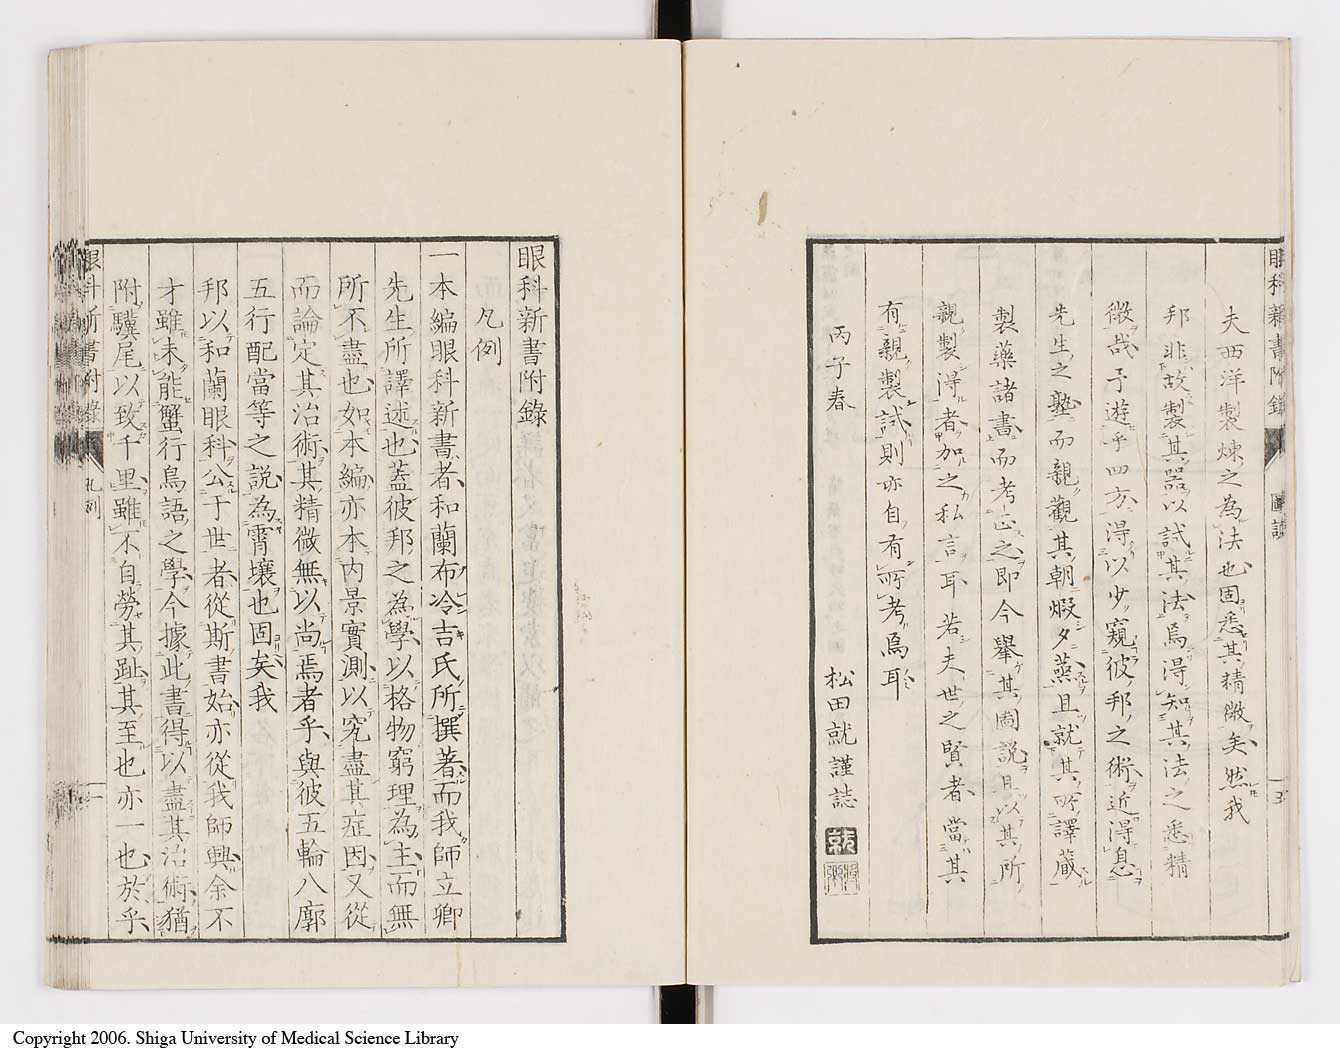 夫西洋製煉之為法也固悉其精微矣然我
邦非故製其器以試其法焉得知其法之悉精
微哉予遊乎四方得以少窺彼邦之術近得息
先生之塾而親觀其朝煆夕蒸且就其所譯蔵
製藥諸書而考正之即今舉其圖說且以其所
親製得者加之私言耳若夫世之賢者當其
有親製試則亦自有所考焉耳
丙子春
松田就謹誌
眼科新書附錄
眼科新書附錄
凡例
一本編眼科新書者和蘭布冷吉氏所撰著而我師立卿
先生所譯述也蓋彼邦之為學以格物窮理為主而無
所不盡也如本編亦本内景實測以究盡其症因又從
而論定其治術其精微無以尚焉者乎與彼五輪八廓
五行配當等之說為霄壤也固矣我
邦以和蘭眼科公于世者從斯書始亦從我師興余不
才雖未能蟹行鳥語之學今據此書得以盡其治術猶
附驥尾以致千里雖不自勞其趾其至也亦一也於乎
眼科新書附錄
凡例
一
Copyright 2006. Shiga University of Medical Science Library